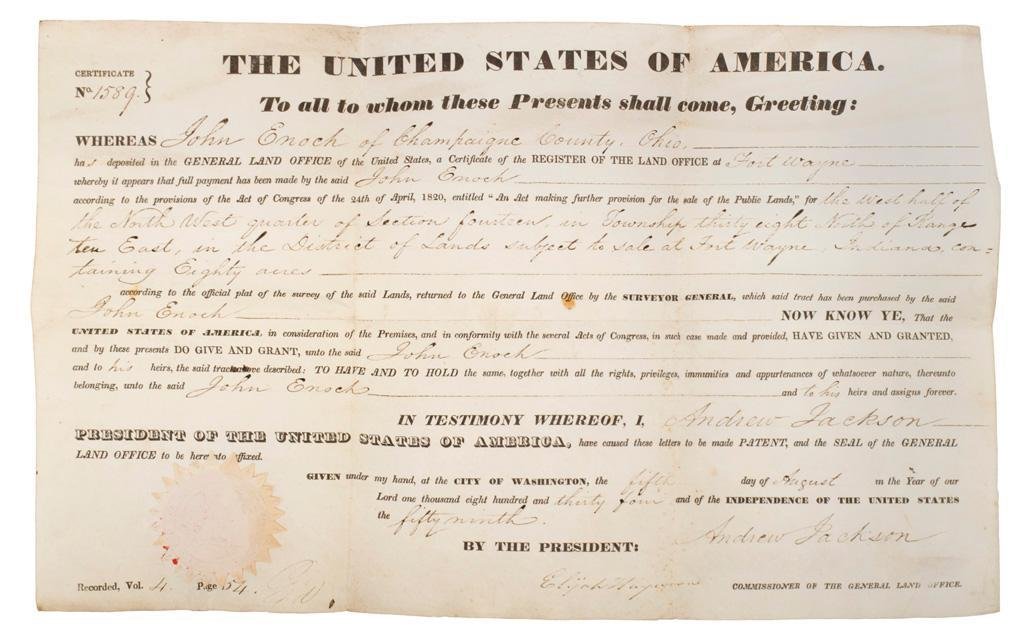 THE UNITED STATES OF AMERICA.
CERTIFICATE
No. 1589.
To all to whom these Presents shall come, Greeting:
WHEREAS John Enoch of Champaigne County, Ohio,
has deposited in the GENERAL LAND OFFICE of the United States, a Certificate of the REGISTER OF THE LAND OFFICE at Fort Wayne
whereby it appears that full payment has been made by the said John Enoch
according to the provisions of the Act of Congress of the 24th of April, 1820, entitled "An Act making further provision for the sale of the Public Lands," for the West half of
the North West quarter of Section fourteen, in Township thirty eight North of Range
ten East, in the District of Lands subject to sale at Fort Wayne, Indiana, con-
taining Eighty acres
according to the official plat of the survey of the said Lands, returned to the General Land Office by the SURVEYOR GENERAL, which said tract has been purchased by the said
John Enoch NOW KNOW YE, That the
UNITED STATES OF AMERICA, in consideration of the Premises, and in conformity with the several Acts of Congress, in such case made and provided, HAVE GIVEN AND GRANTED,
and by these presents DO GIVE AND GRANT, unto the said John Enoch
and to his heirs, the said tract above described: TO HAVE AND TO HOLD the same, together with all the rights, privileges, immunities and appurtenances of whatsoever nature, thereunto
belonging, unto the said John Enoch and to his heirs and assigns forever.
IN TESTIMONY WHEREOF, I, Andrew Jackson
PRESIDENT OF THE UNITED STATES OF AMERICA, have caused these letters to be made PATENT, and the SEAL of the GENERAL
LAND OFFICE to be hereunto affixed.
GIVEN under my hand, at the CITY OF WASHINGTON, the fifth day of August in the Year of our
Lord one thousand eight hundred and thirty four and of the INDEPENDENCE OF THE UNITED STATES
the fifty ninth.
BY THE PRESIDENT: Andrew Jackson
Elijah Hayward COMMISSIONER OF THE GENERAL LAND OFFICE.
Recorded, Vol. 4. Page 54.